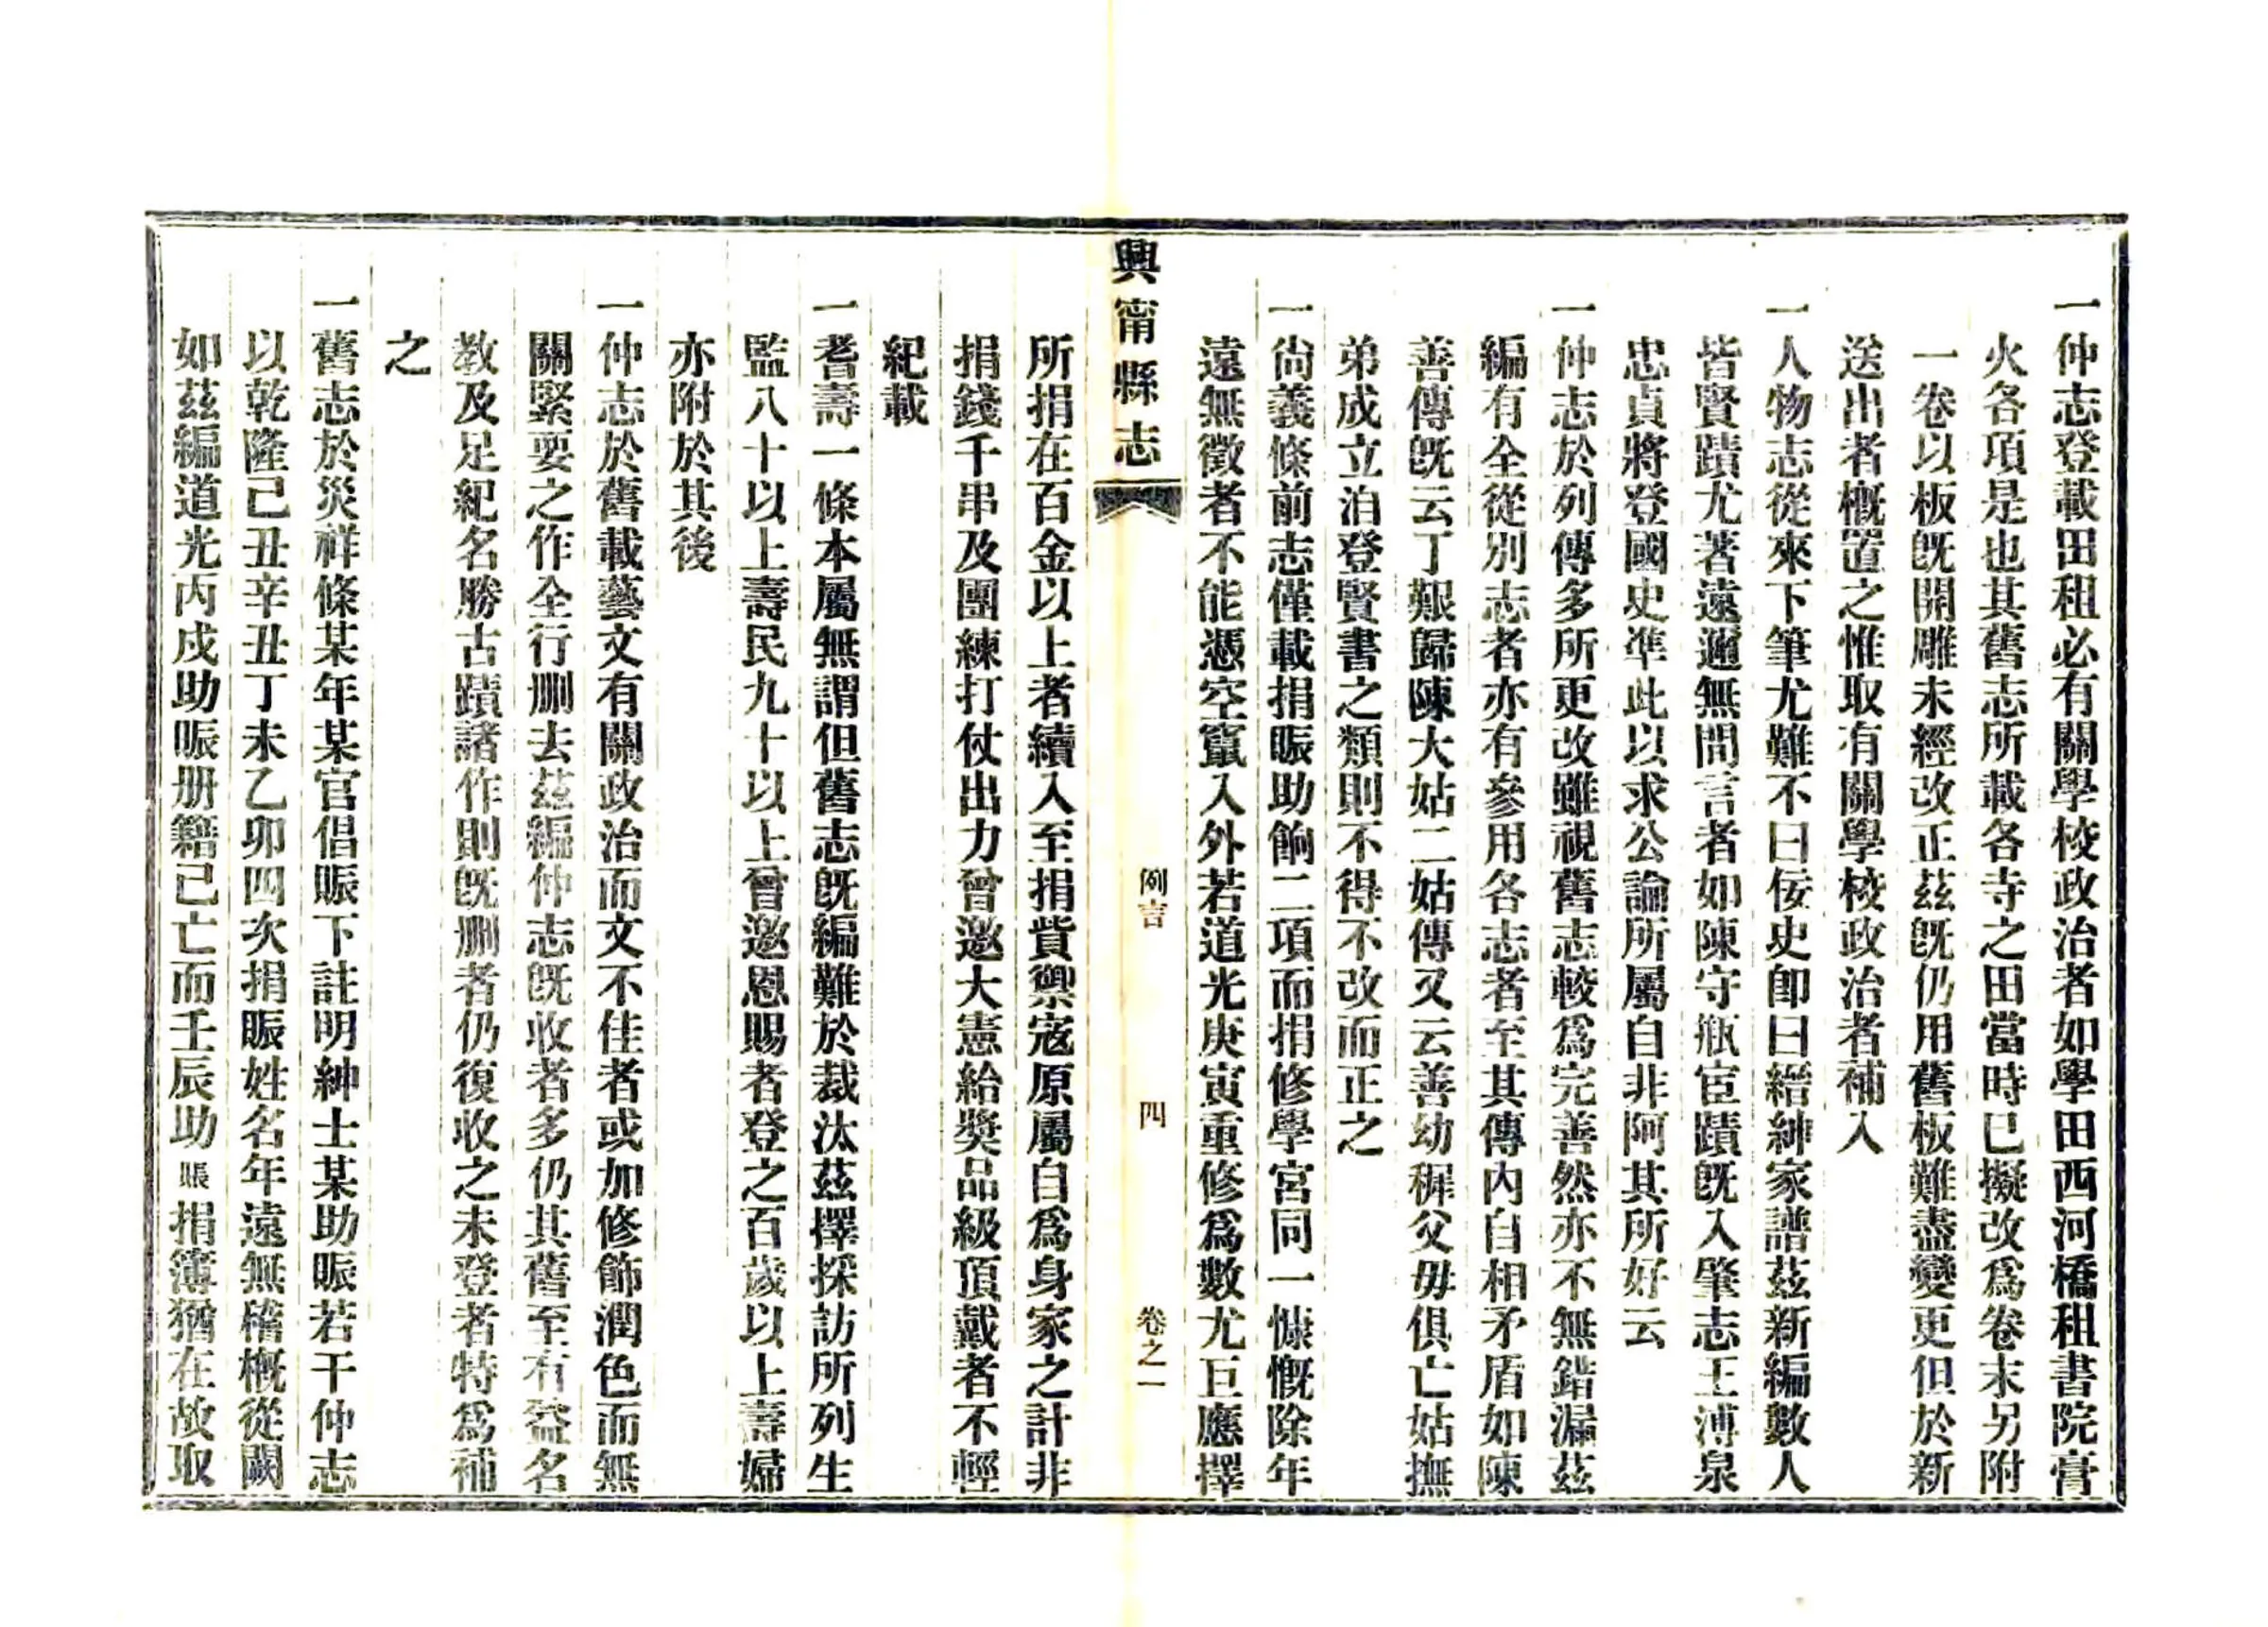 一仲志登載田租必有關學校政治者如學田西河橋租書院膏
火各項是也其舊志所載各寺之田當時已擬改爲卷末另附
一卷以板旣開雕未經改正茲旣仍用舊板難盡變更但於新
送出者槪置之惟取有關學校政治者補入
一人物志從來下筆尤難不曰佞史卽曰縉紳家譜茲新編數人
皆賢蹟尤著遠邇無間言者如陳守瓶宦蹟旣入肇志王溥泉
忠貞將登國史準此以求公論所屬自非阿其所好云
一仲志於列傳多所更改雖視舊志較爲完善然亦不無錯漏茲
編有全從別志者亦有參用各志者至其傳內自相矛盾如陳
善傳旣云丁艱歸陳大姑二姑傳又云善幼穉父毋俱亡姑撫
弟成立泊登賢書之類則不得不改而正之
一尙義條前志僅載捐賑助餉二項而捐修學宮同一慷慨除年
遠無徵者不能憑空竄入外若道光庚寅重修爲數尤巨應擇
興甯縣志
例言
四
卷之一
所捐在百金以上者續入至捐貲禦寇原屬自爲身家之計非
捐錢千串及團練打仗出力曾邀大憲給獎品級頂戴者不輕
紀載
一耆壽一條本屬無謂但舊志旣編難於裁汰茲擇採訪所列生
監八十以上壽民九十以上曾邀恩賜者登之百歲以上壽婦
亦附於其後
一仲志於舊載藝文有關政治而文不佳者或加修飾潤色而無
關緊要之作全行刪去茲編仲志旣收者多仍其舊至有益名
敎及足紀名勝古蹟諸作則旣刪者仍復收之未登者特爲補
之
一舊志於災祥條某年某官倡賑下註明紳士某助賑若干仲志
以乾隆己丑辛丑丁未乙卯四次捐賑姓名年遠無稽槪從闕
如茲編道光丙戌助賑册籍已亡而壬辰助賑捐簿猶在故取